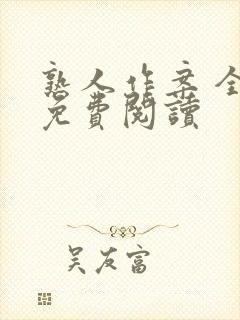 熟人作案全
免費閱讀
吴友富